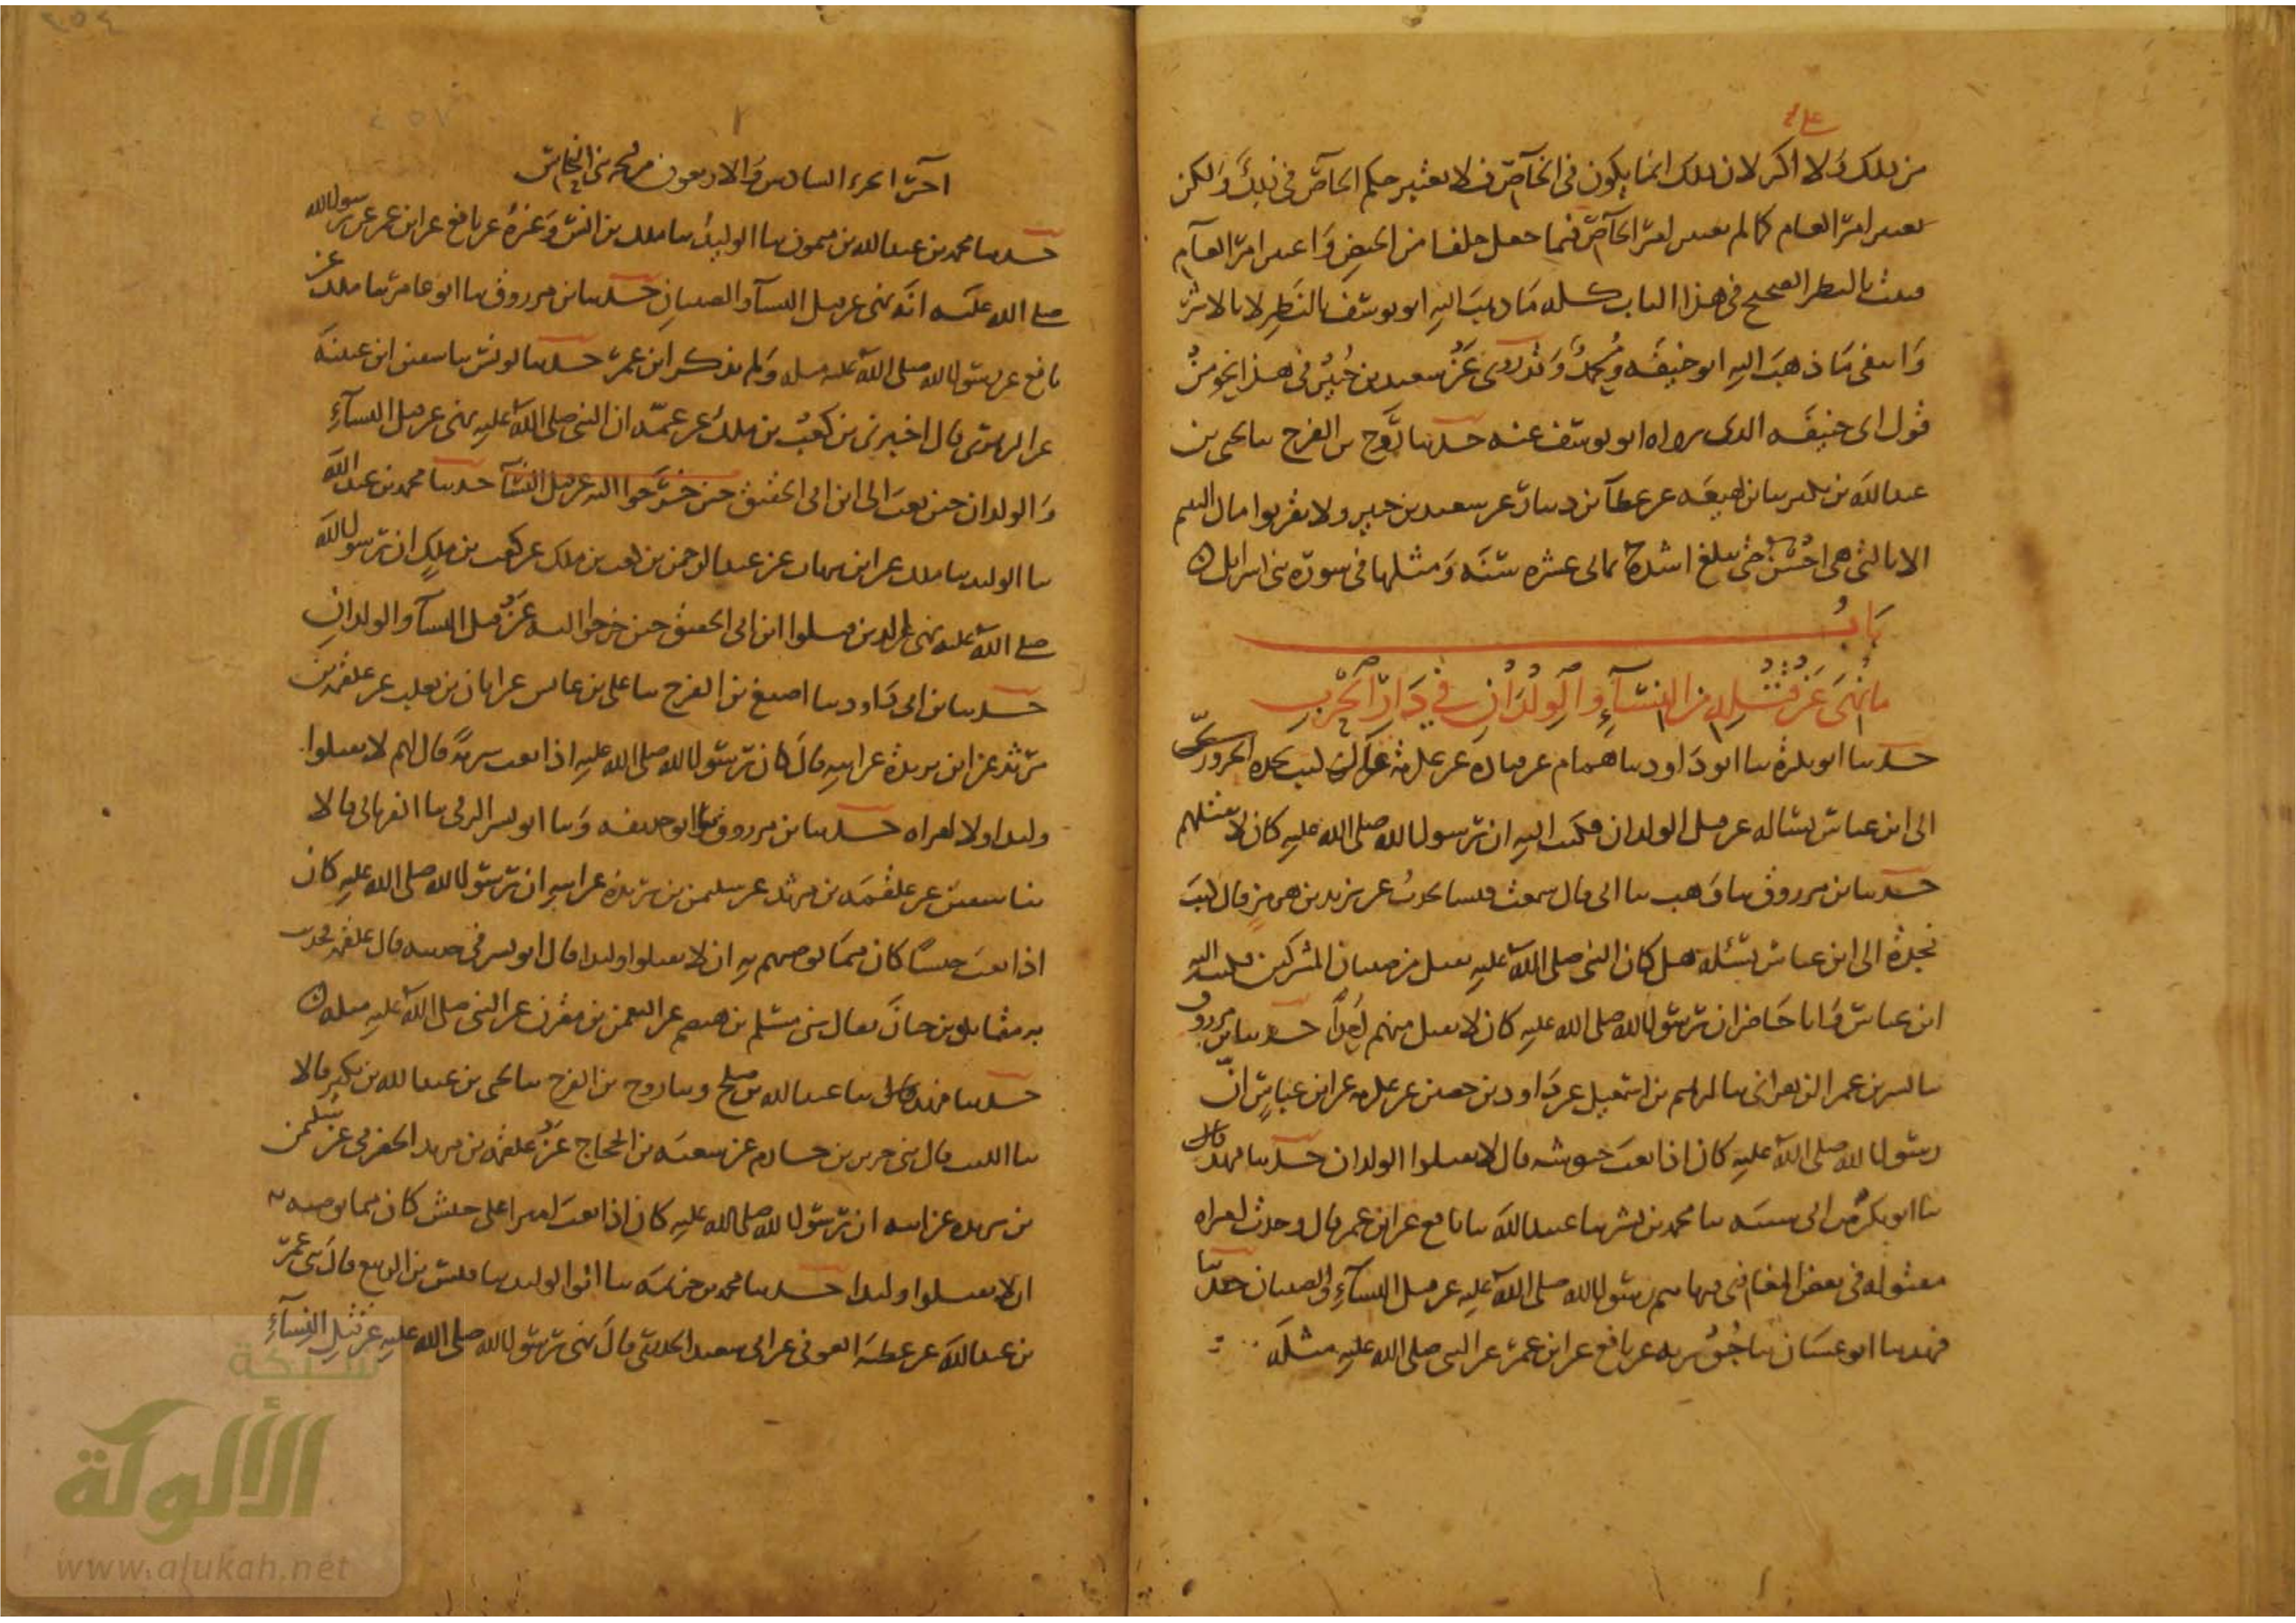 من ذلك ولا اكثر لان ذلك انما يكون في الخاص فلا يعتبر حكم الخاص في ذلك ولكن
يعتبر امر العام كما لم يعتبر امر الخاص فيما جعل خلفا من الحيض واعتبر امر العام
فثبت بالنظر الصحيح في هذا الباب كله ما ذهب اليه ابو يوسف بالنظر لا بالاثر
وانتفى ما ذهب اليه ابو حنيفه ومحمد وقد روي عن سعيد بن جبير في هذا نحو من
قول ابي حنيفه الذي رواه ابو يوسف عنه حدثنا روح بن الفرج ثنا يحيى بن
عبد الله بن بكير ثنا بن لهيعه عن عطآ بن دينار عن سعيد بن جبير ولا تقربوا مال اليتيم
الا بالتي هي احسن حتى يبلغ اشده ثماني عشره سنه ومثلها في سورة بني اسرايل
باب
ما نهي عن قتله من النسآء والولدان في دار الحرب
حدثنا ابو بكرة ثنا ابو داود ثنا همام عن قتاده عن عكرمة كتب نجده الحروري
الى ابن عباس يساله عن قتل الولدان فكتب اليه ان رسول الله صلى الله عليه كان لا يقتلهم
حدثنا بن مرزوق ثنا وهب ثنا ابي قال سمعت قيسا يحدث عن يزيد بن هرمز قال كتب
نجدة الى ابن عباس يسئله هل كان النبي صلى الله عليه يقتل من صبيان المشركين فكتب اليه
ابن عباس وانا حاضر ان رسول الله صلى الله عليه كان لا يقتل منهم احدا حدثنا بن مرزوق
ثنا بشر بن عمر الزهراني ثنا ابراهيم بن اسمعيل عن داود بن حصين عن عكرمه عن ابن عباس ان
رسول الله صلى الله عليه كان اذا بعث جيوشه قال لا تقتلوا الولدان حدثنا فهد قال
ثنا ابو بكر بن ابي شيبه ثنا محمد بن بشر ثنا عبيد الله ثنا نافع عن ابن عمر قال وجدت امراه
مقتوله في بعض المغازي فنهى رسول الله صلى الله عليه عن قتل النسآء والصبيان حدثنا
فهد ثنا ابو غسان ثنا جويريه عن نافع عن ابن عمر عن النبي صلى الله عليه مثله
آخر الجزء السادس والاربعون من
حدثنا محمد بن عبد الله بن ميمون ثنا الوليد ثنا ملك بن انس وغيره عن نافع عن ابن عمر عن رسول الله
صلى الله عليه انه نهى عن قتل النسآ والصبيان حدثنا بن مرزوق ثنا ابو عامر ثنا ملك عن
نافع عن رسول الله صلى الله عليه مثله ولم يذكر ابن عمر حدثنا يونس ثنا سفين ابن عيينه
عن الزهري قال اخبرني بن كعب بن ملك عن عمه ان النبي صلى الله عليه نهى عن قتل النسآء
والولدان حين بعث الى ابن ابي الحقيق حين خرجوا اليه عن قتل النسآ حدثنا محمد بن عبد الله
ثنا الوليد ثنا ملك عن ابن شهاب عن عبد الرحمن بن كعب بن ملك عن كعب بن ملك ان رسول الله
صلى الله عليه نهى الذين قتلوا ابن ابي الحقيق حين خرجوا اليه عن قتل النسآ والولدان
حدثنا بن ابي داود ثنا اصبغ بن الفرج ثنا علي بن عابس عن ابان بن تغلب عن علقمه بن
مرثد عن ابن بريدة عن ابيه قال كان رسول الله صلى الله عليه اذا بعث سرية قال لهم لا تقتلوا
وليدا ولا امراه حدثنا بن مرزوق ثنا ابو حذيفه وثنا ابو بشر الرقي ثنا الفريابي قالا
ثنا سفين عن علقمه بن مرثد عن سليمن بن بريدة عن ابيه ان رسول الله صلى الله عليه كان
اذا بعث جيشا كان مما يوصيهم به ان لا تقتلوا وليدا قال ابو بشر في حديثه قال علقمه فحدثت
به مقاتل بن حيان فقال ثني مسلم بن هيصم عن النعمن بن مقرن عن النبي صلى الله عليه مثله
حدثنا فهد قال ثنا عبد الله بن صالح وثنا روح بن الفرج ثنا يحيى بن عبد الله بن بكير قالا
ثنا الليث قال ثني جرير بن حازم عن شعبه بن الحجاج عن علقمه بن مرثد الحضرمي عن سليمن
بن بريده عن ابيه ان رسول الله صلى الله عليه كان اذا بعث اميرا على جيش كان مما يوصيه به
ان لا تقتلوا وليدا حدثنا محمد بن خزيمه ثنا ابو الوليد ثنا قيس بن الربيع قال ثني عمر
بن عبد الله عن عطيه العوفي عن ابي سعيد الخدري قال نهى رسول الله صلى الله عليه عن قتل النسآء
شبكة
الألوكة
www.alukah.net